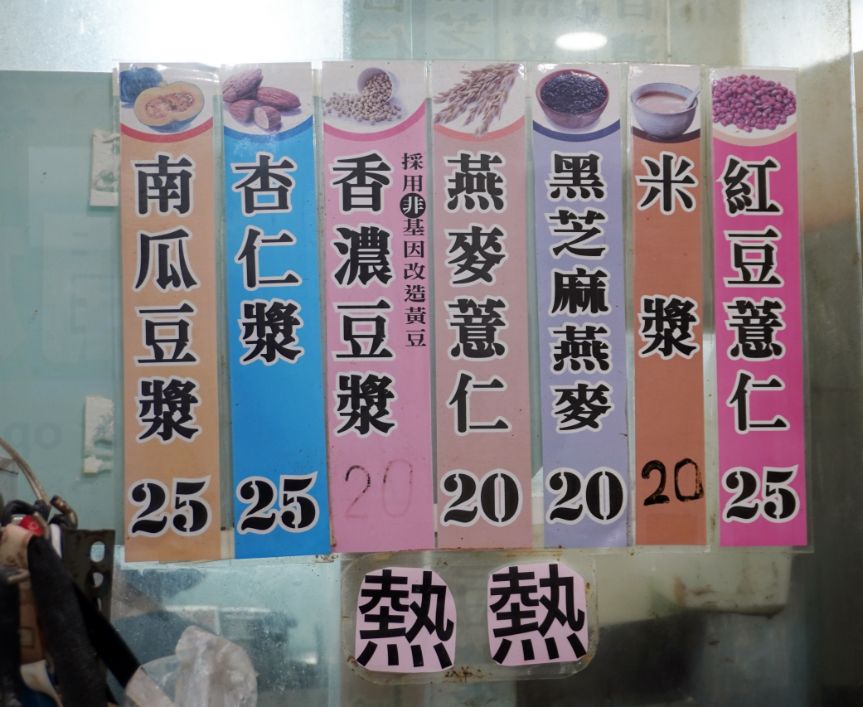 南瓜豆漿 25
杏仁漿 25
香濃豆漿 20
採用非基因改造黃豆
燕麥薏仁 20
黑芝麻燕麥 20
米漿 20
紅豆薏仁 25
熱 熱